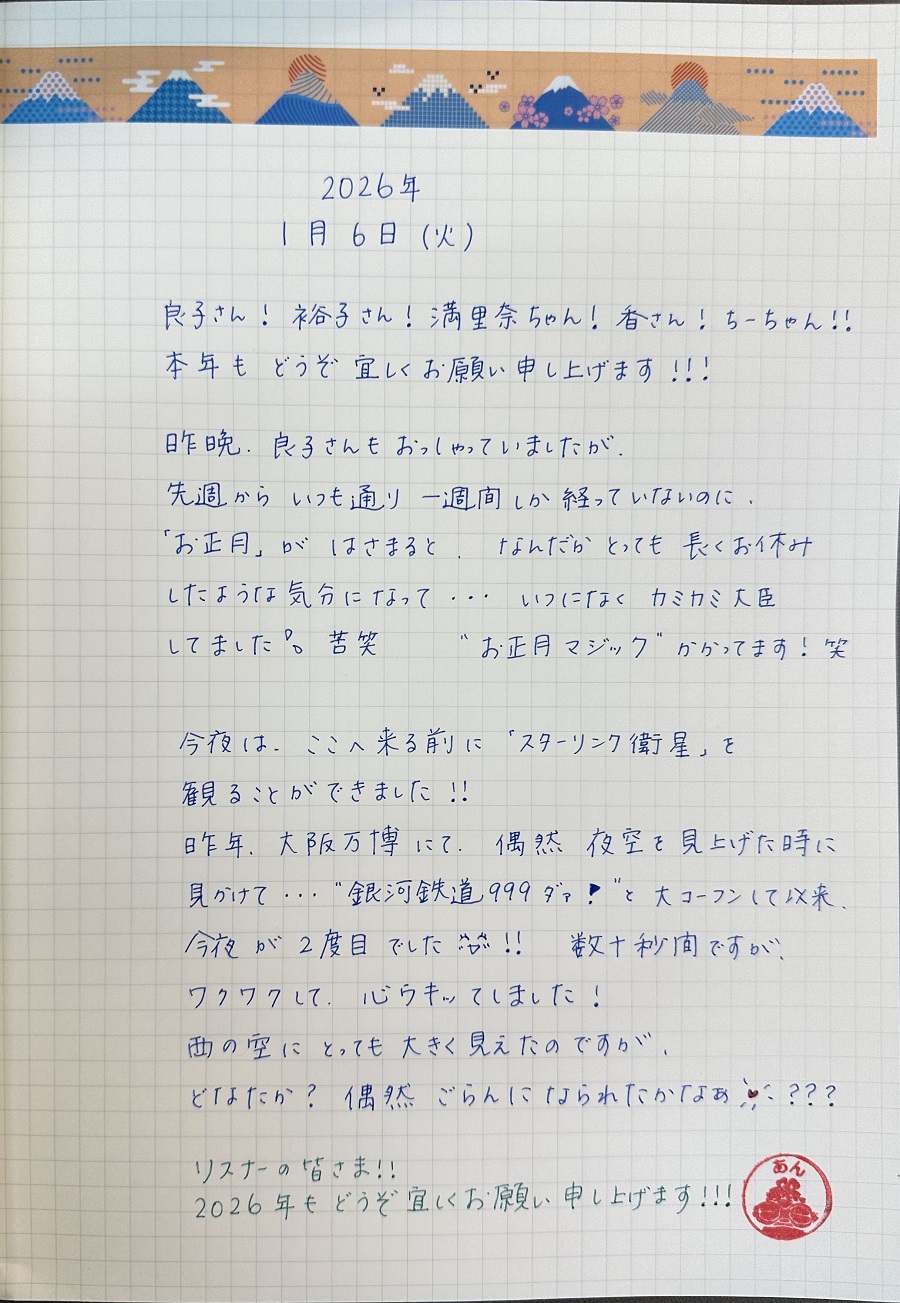 2026年
1月 6日 (火)
良子さん! 裕子さん! 満里奈ちゃん! 香さん! ちーちゃん!!
本年も どうぞ 宜しくお願い申し上げます!!!
昨晩、良子さんも おっしゃっていましたが、
先週から いつも通り 一週間しか 経っていないのに、
「お正月」が はさまると、 なんだか とっても 長くお休み
したような気分になって・・・ いつになく カミカミ大臣
してました。苦笑 “お正月マジック”かかってます! 笑
今夜は、ここへ来る前に「スターリンク衛星」を
観ることができました!!
昨年、大阪万博にて、偶然 夜空を見上げた時に
見かけて・・・“銀河鉄道999 ダァ!”と 大コーフンして以来、
今夜が 2度目 でした!! 数十秒間ですが、
ワクワクして、心ウキッてしました!
西の空に とっても 大きく見えたのですが、
どなたか? 偶然 ごらんに なられたかなぁ ???
リスナーの皆さま!!
2026年もどうぞ宜しくお願い申し上げます!!!
あん